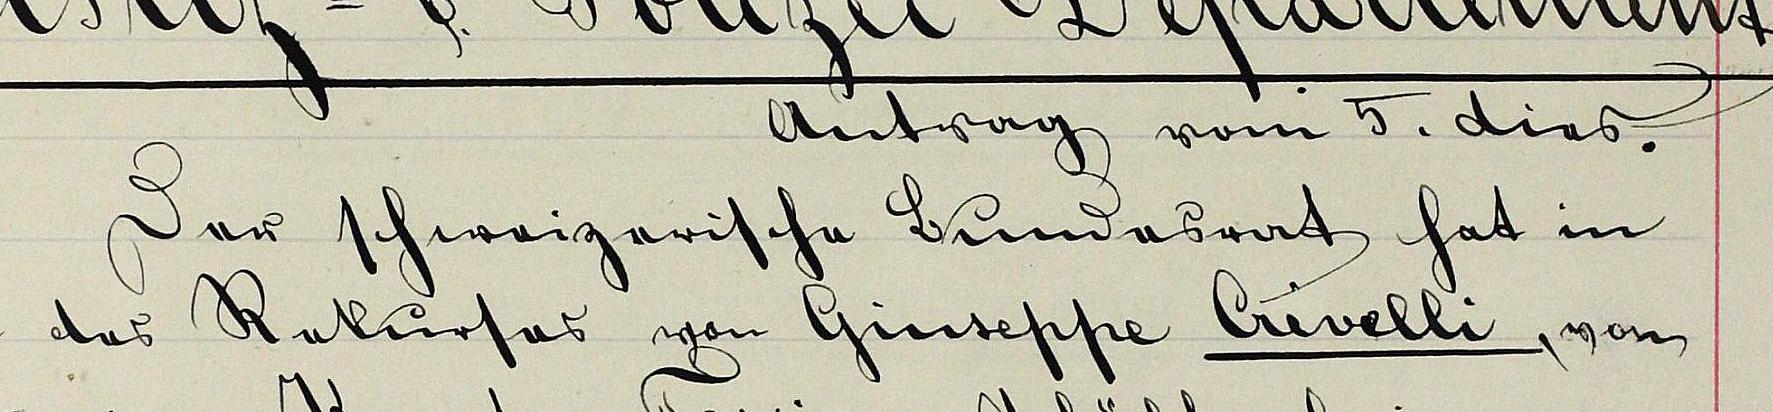 Justiz- & Polizei Departement
Antrag vom 5. dies.
Der schweizerische Bundesrat hat in
des Rekurses von Giuseppe Crivelli, von